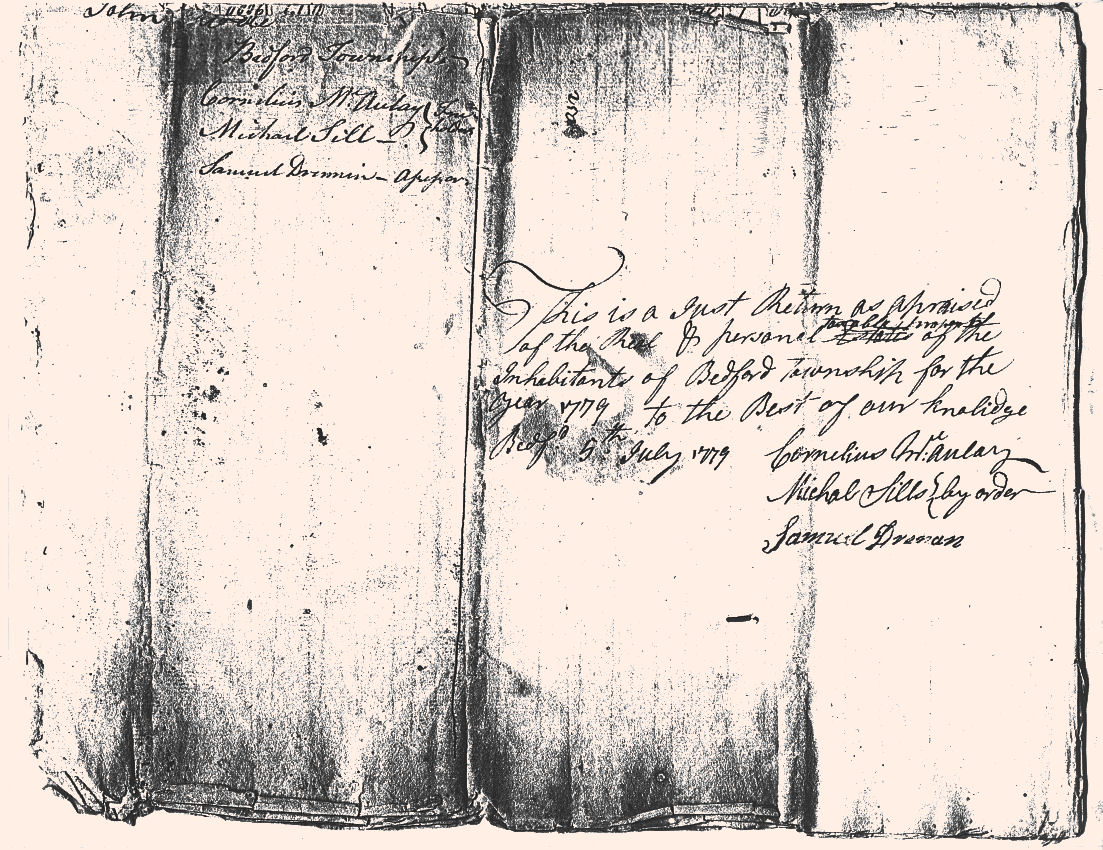 John
Bedford Township
Cornelius McAulay
Michael Sill
Samuel Drennin - Assessor
This is a Just Return as apraised
of the Real & personal Estates of the
Inhabitants of Bedford Township for the
Year 1779 to the Best of our knalidge
Bedfd 5th July 1779
Cornelius McAulay
Michal Sills } by order
Samuel Drenan